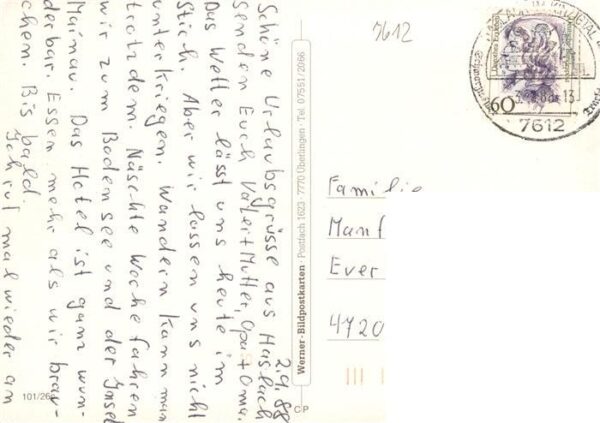 2.9.88
Schöne Urlaubsgrüsse aus Haslach
senden Euch Vater+Mutter, Opa+Oma.
Das Wetter lässt uns heute im
Stich. Aber wir lassen uns nicht
unterkriegen. Wandern kann man
trotzdem. Näschte Woche fahren
wir zum Bodensee und der Insel
Mainau. Das Hotel ist ganz wun-
derbar. Essen mehr als wir brau-
chen. Bis bald.
Ich ruf mal wieder an
101/26
Werner-Bildpostkarten · Postfach 1623 · 7770 Überlingen · Tel. 07551/2066
CP
5612
60
7612
Familie
Manf
Ever
4720